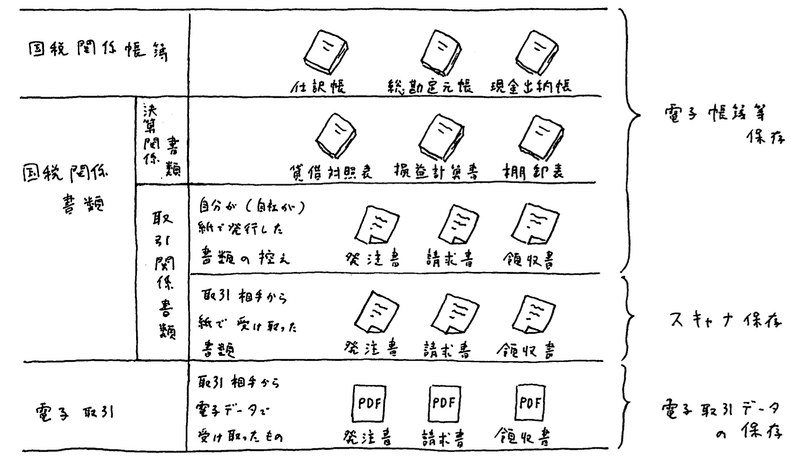 国税関係帳簿
仕訳帳 総勘定元帳 現金出納帳
国税関係
書類
決算関係
書類
貸借対照表 損益計算書 棚卸表
取引関係書類
自分が(自社が)
紙で発行した
書類の控え
発注書 請求書 領収書
取引相手から
紙で受け取った
書類
発注書 請求書 領収書
電子取引
取引相手から
電子データで
受け取ったもの
PDF PDF PDF
発注書 請求書 領収書
電子帳簿等
保存
スキャナ保存
電子取引データ
の保存